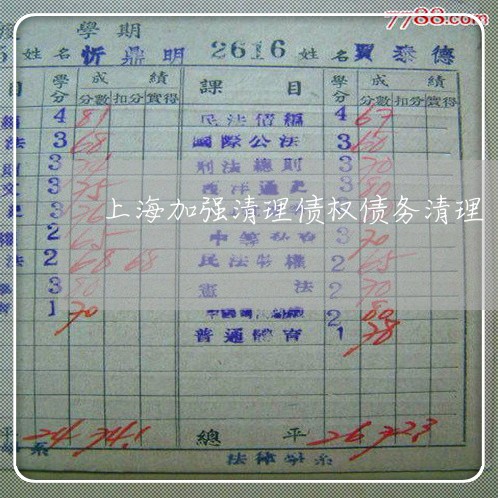 7788.com
學期
姓名 忻鼎明 2616 姓名 賈泰德
目 學分 成績 課目 學分 成績
分數 扣分 實得 分數 扣分 實得
4 81 民法債編 4 67
法 3 68 國際公法 3 60
3 刑法總則 3 70
3 75 西洋通史 3 80
3
上海加强清理债权债务清理
2 65 3 70
法 2 68 68 民法物權 2 65
3 80 憲法 2 70
1 70 2 80
普通體育 1 78
平 24 74.1 總平 26 72.3
系 法律學系